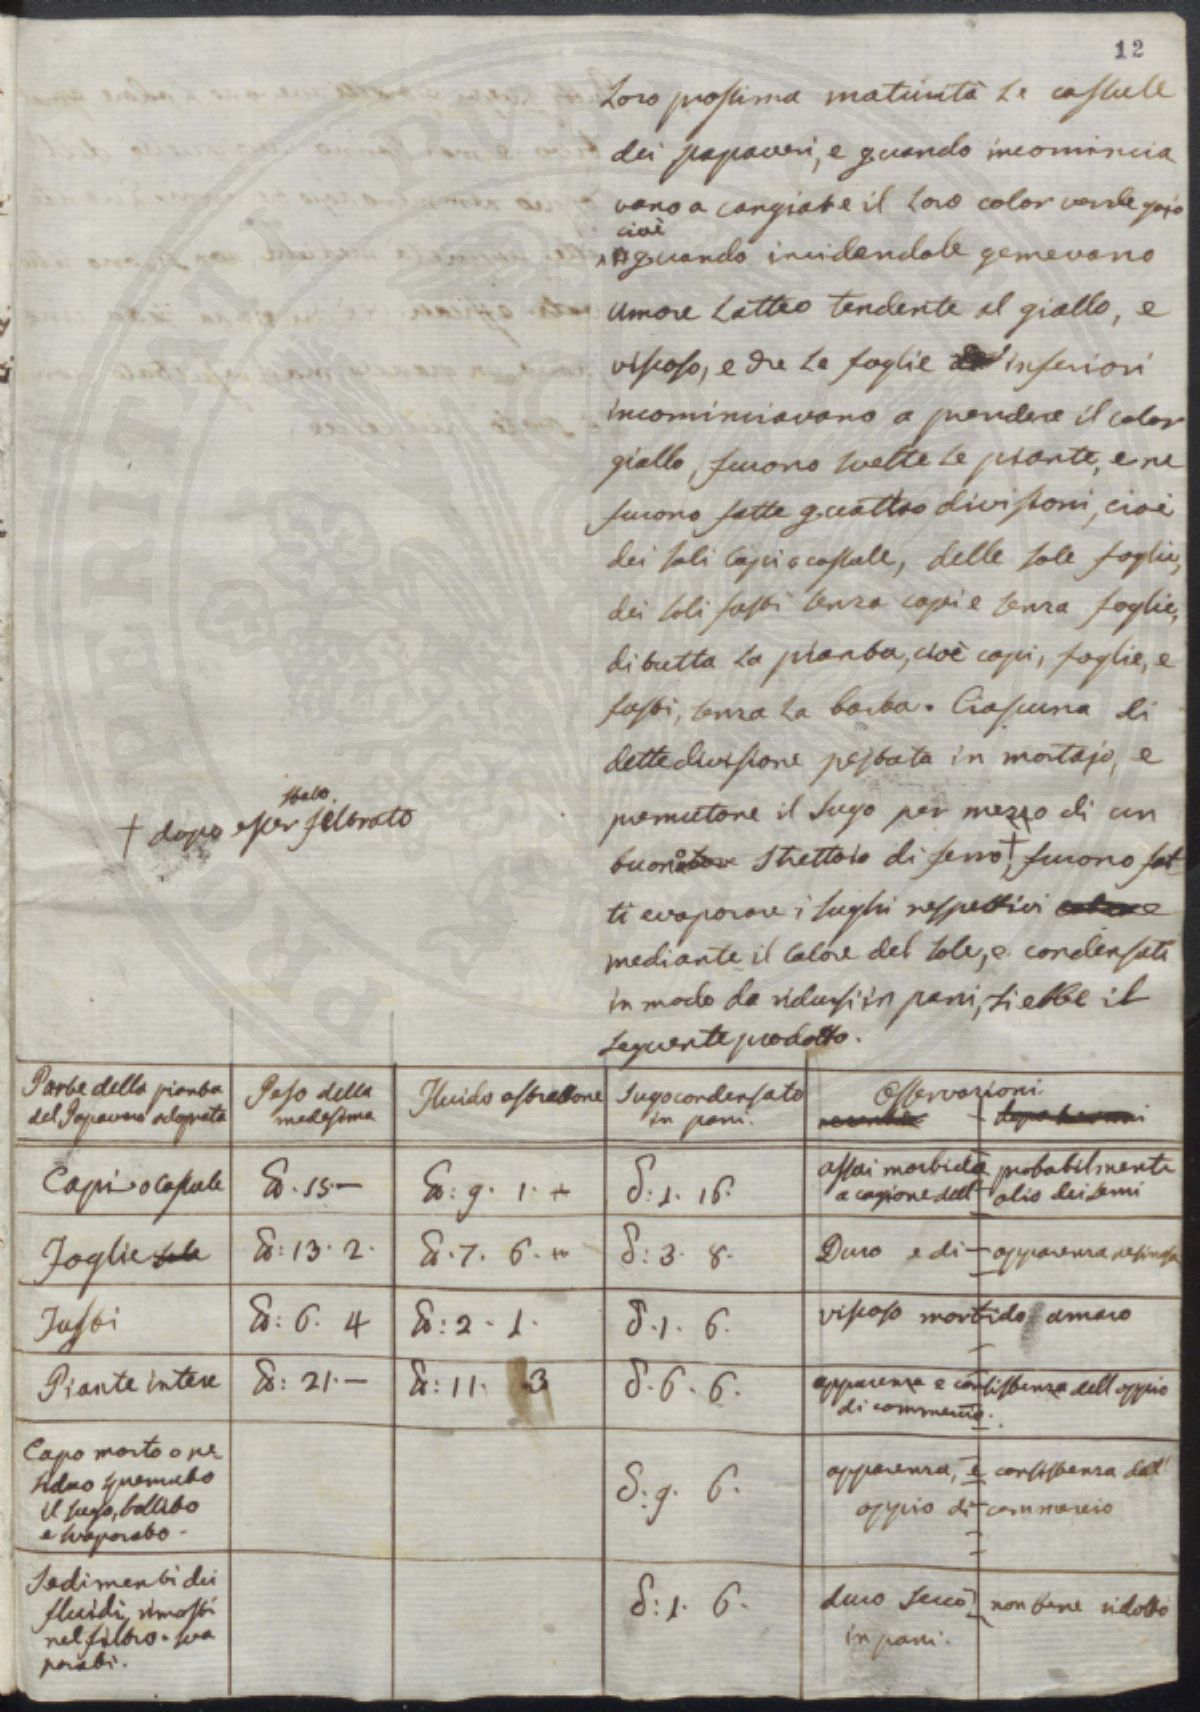 12
loro prossima maturità le cassule
dei papaveri, e quando incomincia
vano a cangiare il loro color verde gajo
cioè
quando incidendole gemevano
umore latteo tendente al giallo, e
viscoso, e che le foglie inferiori
incominciavano a prendere il color
giallo, furono svelte le piante, e ne
furono fatte quattro divisioni, cioè
dei soli capi o cassule, delle sole foglie,
dei soli fusti senza capi e senza foglie,
di tutta la pianta, cioè capi, foglie, e
fusti, senza la barba. Ciascuna di
dette divisione pestata in mortajo, e
premutone il sugo per mezzo di un
buon strettoio di ferro †, furono fat
ti evaporare i sughi respettivi
mediante il calore del sole, e condensati
in modo da ridursi in pani, si ebbe il
seguente prodotto.
stato
† dopo esser filtrato
Parte della pianta
del Papavero adoprata
Peso della
medesima
Fluido estrattone
Sugo condensato
in pani.
Osservazioni
Capi o cassule
15. —
9. 1.
1. 16.
assai morbida probabilmente
a cagione dell' olio dei semi
Foglie sole
13. 2.
7. 6.
3. 8.
Duro e di apparenza resinosa
Fusti
6. 4
2. 1.
1. 6.
viscoso morbido amaro
Piante intere
21. —
11. 3
6. 6.
apparenza e consistenza dell' oppio
di commercio.
Capo morto o re
siduo spremuto
il sugo, bollito
e svaporato.
9. 6.
apparenza, e consistenza dell'
oppio di commercio
Sedimenti dei
fluidi rimasti
nel filtro sva
porati.
1. 6.
duro secco non bene ridotto
in pani.